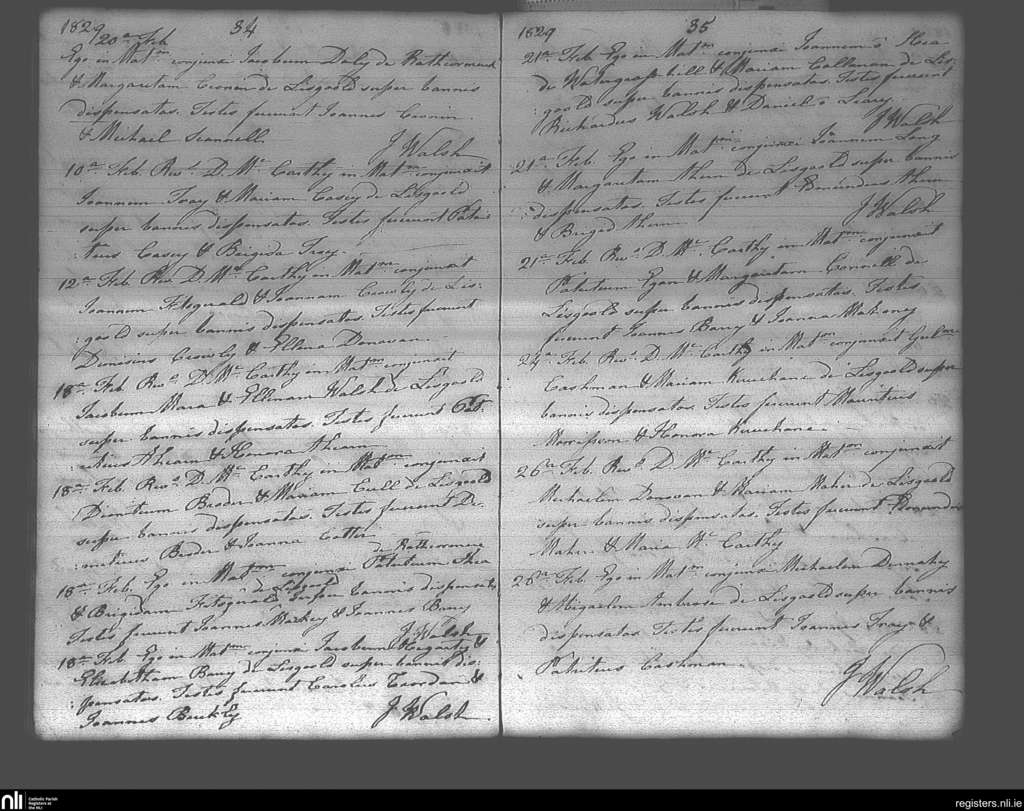 1829 34
20a Feb
Ego in Matm conjunxi Jacobum Daly de Rathcormack
& Margaretam Cronin de Lisgoold super bannis
dispensatas. Testes fuerunt Joannes Cronin
& Michael Scannell. J Walsh
10a Feb. Revd D. Mc Carthy in Matm conjunxit
Joannem Troy & Mariam Casey de Lisgoold
super bannis dispensatas. Testes fuerunt Patri
:tius Casey & Brigida Troy.
12a Feb. Revd D. Mc Carthy in Matm conjunxit
Joannem Fitzgerald & Joannam Crowly de Lis:
:goold super bannis dispensatas. Testes fuerunt
Dionisius Crowly & Ellena Donovan.
18a Feb. Revd D. Mc Carthy in Matm conjunxit
Jacobum Mara & Ellenam Walsh de Lisgoold
super bannis dispensatas. Testes fuerunt Pat:
:ritius Ahearn & Honora Ahearn
18a Feb. Revd D. Mc Carthy in Matm conjunxit
Dimitrium & Mariam de Lisgoold
super bannis dispensatas. Testes fuerunt De:
:metrius & Joanna Cotter
de Rathcormac
18a Feb. Ego in Matm conjunxi Patritium Shea
& Brigidam Fitzgerald de Lisgoold super bannis dispensatas
Testes fuerunt Joannes Mackey & Joannes Barry
J Walsh
18a Feb. Ego in Matm conjunxi Jacobum Hegarty &
Elizabetham Barry de Lisgoold super bannis dis:
:pensatas. Testes fuerunt Carolus &
Joannes Buckly J Walsh
1829 35
21a Feb. Ego in Matm conjunxi Joannem ō Hea
de Watergrass hill & Mariam Callenan de Lis:
:goold super bannis dispensatas. Testes fuerunt
Richardus Walsh & Daniel ō Leary
J Walsh
21a Feb. Ego in Matm conjunxi Joannem Long
& Margaretam Ahern de Lisgoold super bannis
:dispensatas. Testes fuerunt Edmundus Ahern
& Briged Ahern. J Walsh
21a Feb. Revd D. Mc Carthy in Matm conjunxit
Patritium Egan & Margaretam Connell de
Lisgoold super bannis dispensatas. Testes
fuerunt Joannes Barry & Joanna Mahony
24a Feb. Revd D. Mc Carthy in Matm conjunxit Gulme
Cashman & Mariam Kuuchane de Lisgoold super
bannis dispensatas. Testes fuerunt Mauritius
Morrison & Honora Kuuchane.
26a Feb. Revd D. Mc Carthy in Matm conjunxit
Michaelem Donovan & Mariam Maher de Lisgoold
super bannis dispensatas. Testes fuerunt
Maher & Maria Mc Carthy
26a Feb. Ego in Matm conjunxi Michaelem Dunnahy
& Abigaelem Ambrose de Lisgoold super bannis
dispensatas. Testes fuerunt Joannes Troy &
Patritius Cashman. J Walsh
nli Catholic Parish
Registers at
the NLI
registers.nli.ie